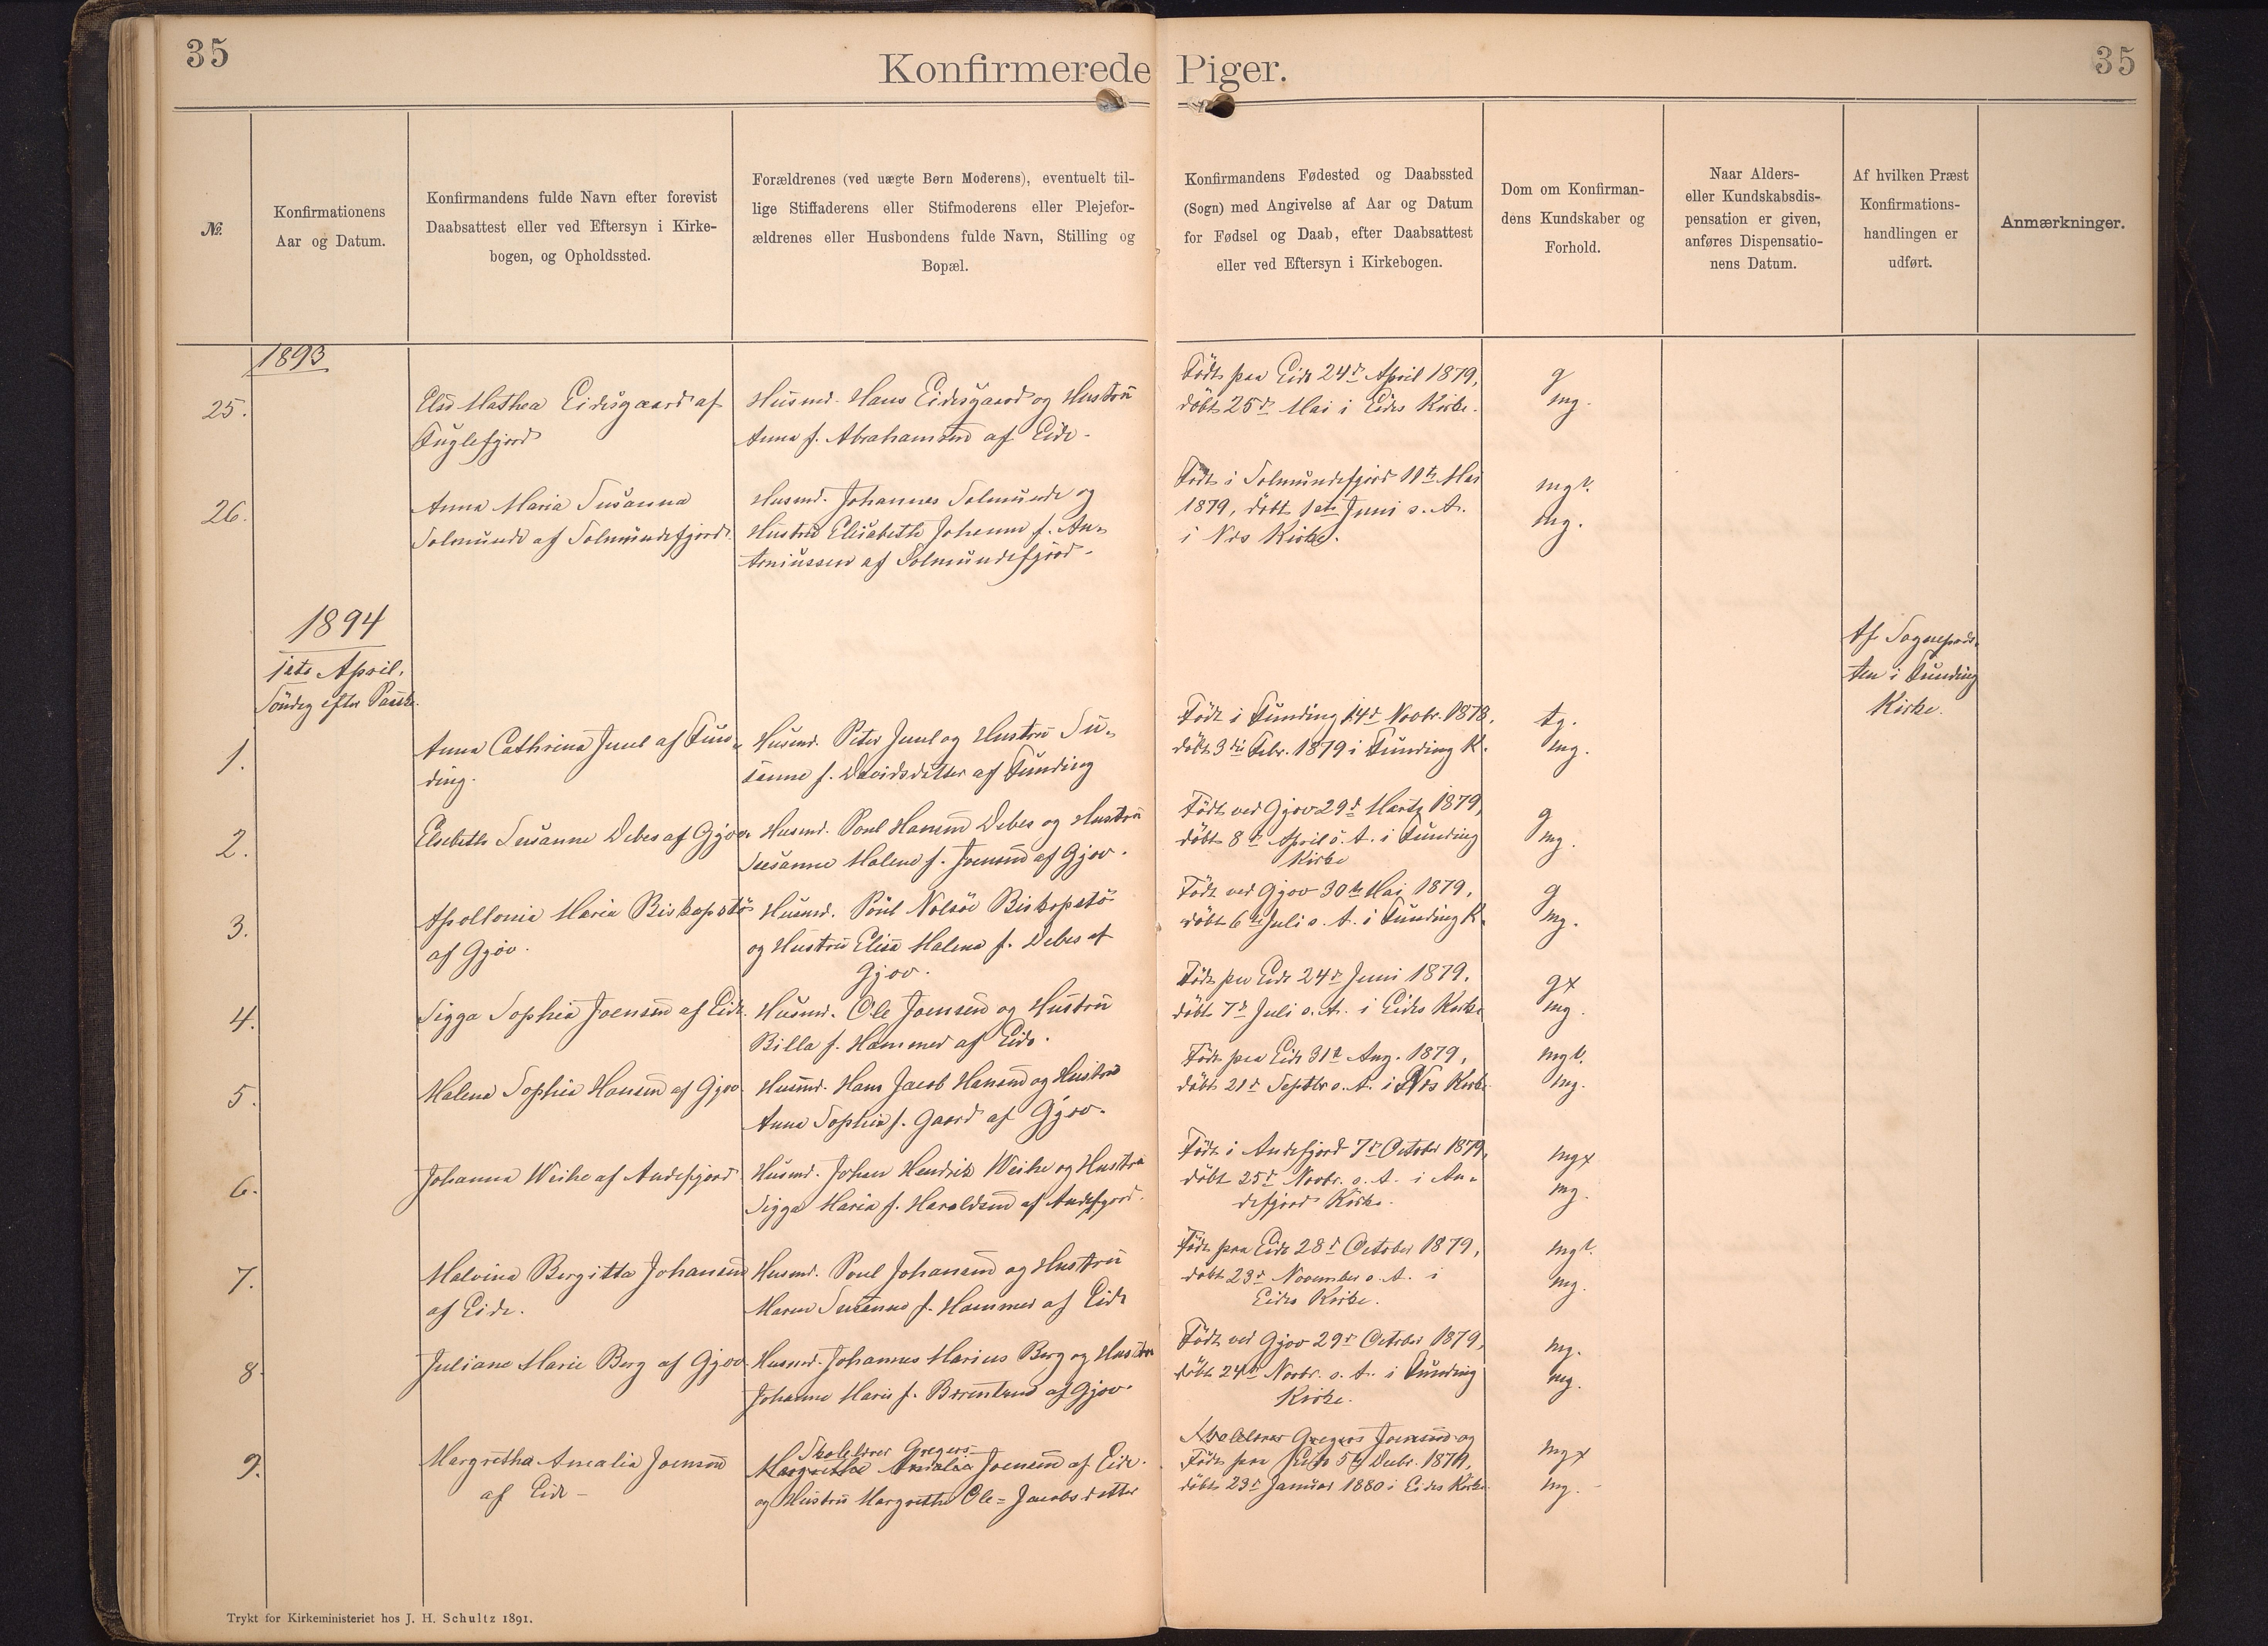 35
Konfirmerede Piger.
35
№.
Konfirmationens
Aar og Datum.
Konfirmandens fulde Navn efter forevist
Daabsattest eller ved Eftersyn i Kirke-
bogen, og Opholdssted.
Forældrenes (ved uægte Børn Moderens), eventuelt til-
lige Stiffaderens eller Stifmoderens eller Plejefor-
ældrenes eller Husbondens fulde Navn, Stilling og
Bopæl.
Konfirmandens Fødested og Daabssted
(Sogn) med Angivelse af Aar og Datum
for Fødsel og Daab, efter Daabsattest
eller ved Eftersyn i Kirkebogen.
Dom om Konfirman-
dens Kundskaber og
Forhold.
Naar Alders-
eller Kundskabsdis-
pensation er given,
anføres Dispensatio-
nens Datum.
Af hvilken Præst
Konfirmations-
handlingen er
udført.
Anmærkninger.
1893
25.
Else Mathea Eidesgaard af
Fuglefjord
Husmd. Hans Eidesgaard og Hustrü
Anna f. Abrahamsen af Eide.
Födt paa Eide 24de April 1879,
döbt 25de Mai i Eides Kirke.
g
mg.
26.
Anna Maria Susanna
Solmunde af Solmundefjord.
Husmd. Johannes Solmunde og
Hustru Elisabeth Johanne f. An-
toniussen af Solmundefjord.
Födt i Solmundefjord 11te Mai
1879, döbt 1ste Juni s. A.
i Næs Kirke.
mgt.
mg.
1894
1ste April,
Söndag efter Paaske.
Af Sognepræs-
ten i Funding
Kirke.
1.
Anna Cathrina Juul af Fun-
ding.
Husmd. Peter Juul og Hustrü Su-
sanne f. Davidsdatter af Funding
Födt i Funding 14de Novbr. 1878,
döbt 3die Febr. 1879 i Funding K.
tg.
mg.
2.
Elsebeth Susanne Debes af Gjov.
Husmd. Poul Hansen Debes og Hustrü
Susanne Malene f. Joensen af Gjov.
Födt ved Gjov 29de Martz 1879,
döbt 8de April s. A. i Funding
Kirke
g
mg.
3.
Apollonia Maria Biskopstö
af Gjov.
Husmd. Poul Nolsöe Biskopstö
og Hustrü Elisa Malena f. Debes af
Gjov.
Födt ved Gjov 30te Mai 1879,
döbt 6te Juli s. A. i Funding K.
g
mg.
4.
Sigga Sophia Joensen af Eide.
Husmd. Ole Joensen og Hustrü
Billa f. Hammer af Eide.
Födt paa Eide 24de Juni 1879,
döbt 7de Juli s. A. i Eides Kirke
gx
mg.
5.
Malena Sophia Hansen af Gjov.
Husmd. Hans Jacob Hansen og Hustru
Anna Sophia f. Gaard af Gjov.
Födt paa Eide 31te Aug. 1879,
döbt 21de Septbr s. A. i Næs Kirke.
mgt.
mg.
6.
Johanna Weihe af Andefjord
Husmd. Johan Hendrik Weihe og Hustru
Sigga Maria f. Haraldsen af Andefjord.
Födt i Andefjord 7de October 1879,
döbt 25de Novbr. s. A. i An-
defjord Kirke.
mgx
mg.
7.
Malvina Bergitta Johansen
af Eide.
Husmd. Poul Johansen og Hustrü
Maren Susanne f. Hammer af Eide
Födt paa Eide 28de October 1879,
döbt 23de November s. A. i
Eides Kirke.
mgt.
mg.
8.
Juliane Marie Berg af Gjov
Husmd. Johannes Marius Berg og Hustru
Johanne Marie f. Berentsen af Gjov.
Födt ved Gjov 29de October 1879,
döbt 24de Novbr. s. A. i Funding
Kirke.
mg.
mg.
9.
Margretha Amalia Joensen
af Eide
Skolelærer Gregers
Margretha Amalia Joensen af Eide.
og Hustrü Margretha Ole=Jacobsdatter
Skolelærer Gregers Joensen og
Födt paa Eide 5te Decbr. 1879,
döbt 23de Januar 1880 i Eides Kirke.
mgx
mg.
Trykt for Kirkeministeriet hos J. H. Schultz 1891.